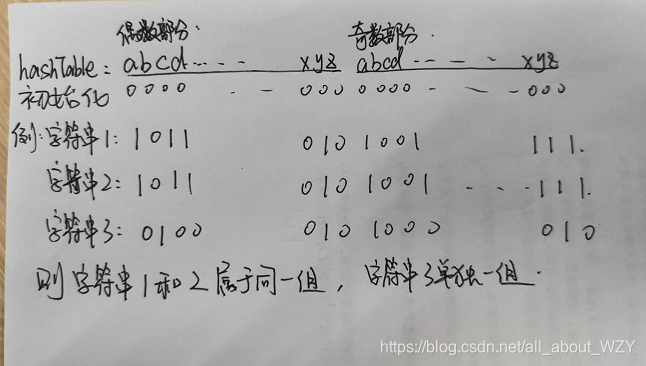 偶数部分: 奇数部分.
hashTable: abcd... - - xyz abcd -- -- - xyz
初始化 0000 - - 000 0000 - - - 000
例:字符串1: 1011 010 1001 111.
字符串2: 1011 010 1001 - - - 111.
字符串3: 0100 010 1000 010
则字符串1和2属于同一组, 字符串3单独一组.
https://blog.csdn.net/all_about_WZY